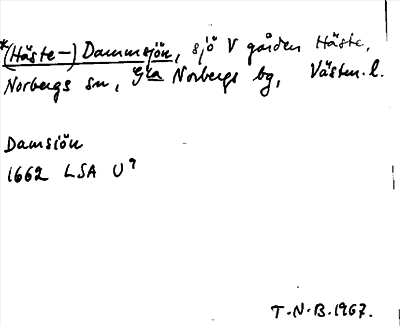 *(Häste-) Dammsjön, sjö V gården Häste,
Norbergs sn, Gla Norbergs bg, Västm. l.
Damsiön
1662 LSA U⁹
T.N.B. 1967.